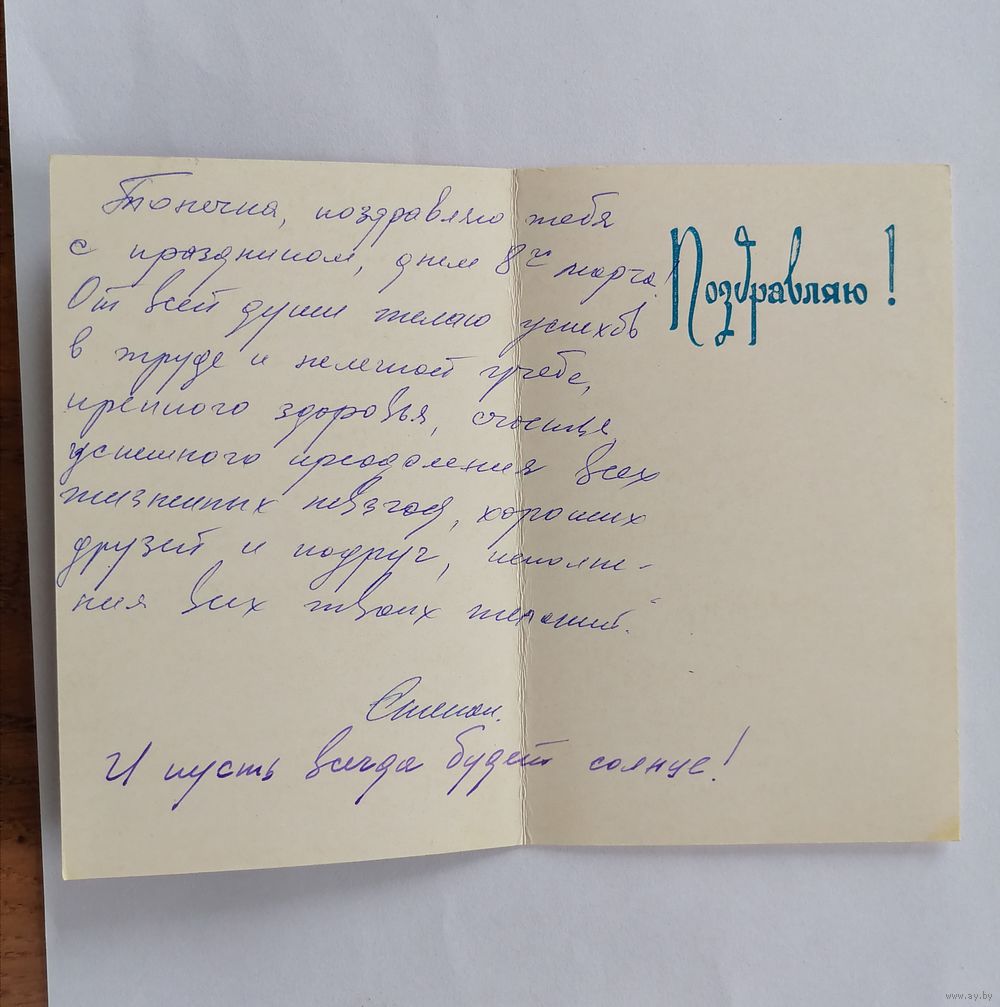 Тонечка, поздравляю тебя
с праздником, днем 8ᵐ марта!
От всей души желаю успехов
в труде и нелегкой учебе,
крепкого здоровья, счастья,
успешного преодоления всех
жизненных невзгод, хороших
друзей и подруг, исполне-
ния всех твоих желаний.
Степан.
И пусть всегда будет солнце!
Поздравляю!
www.ay.by